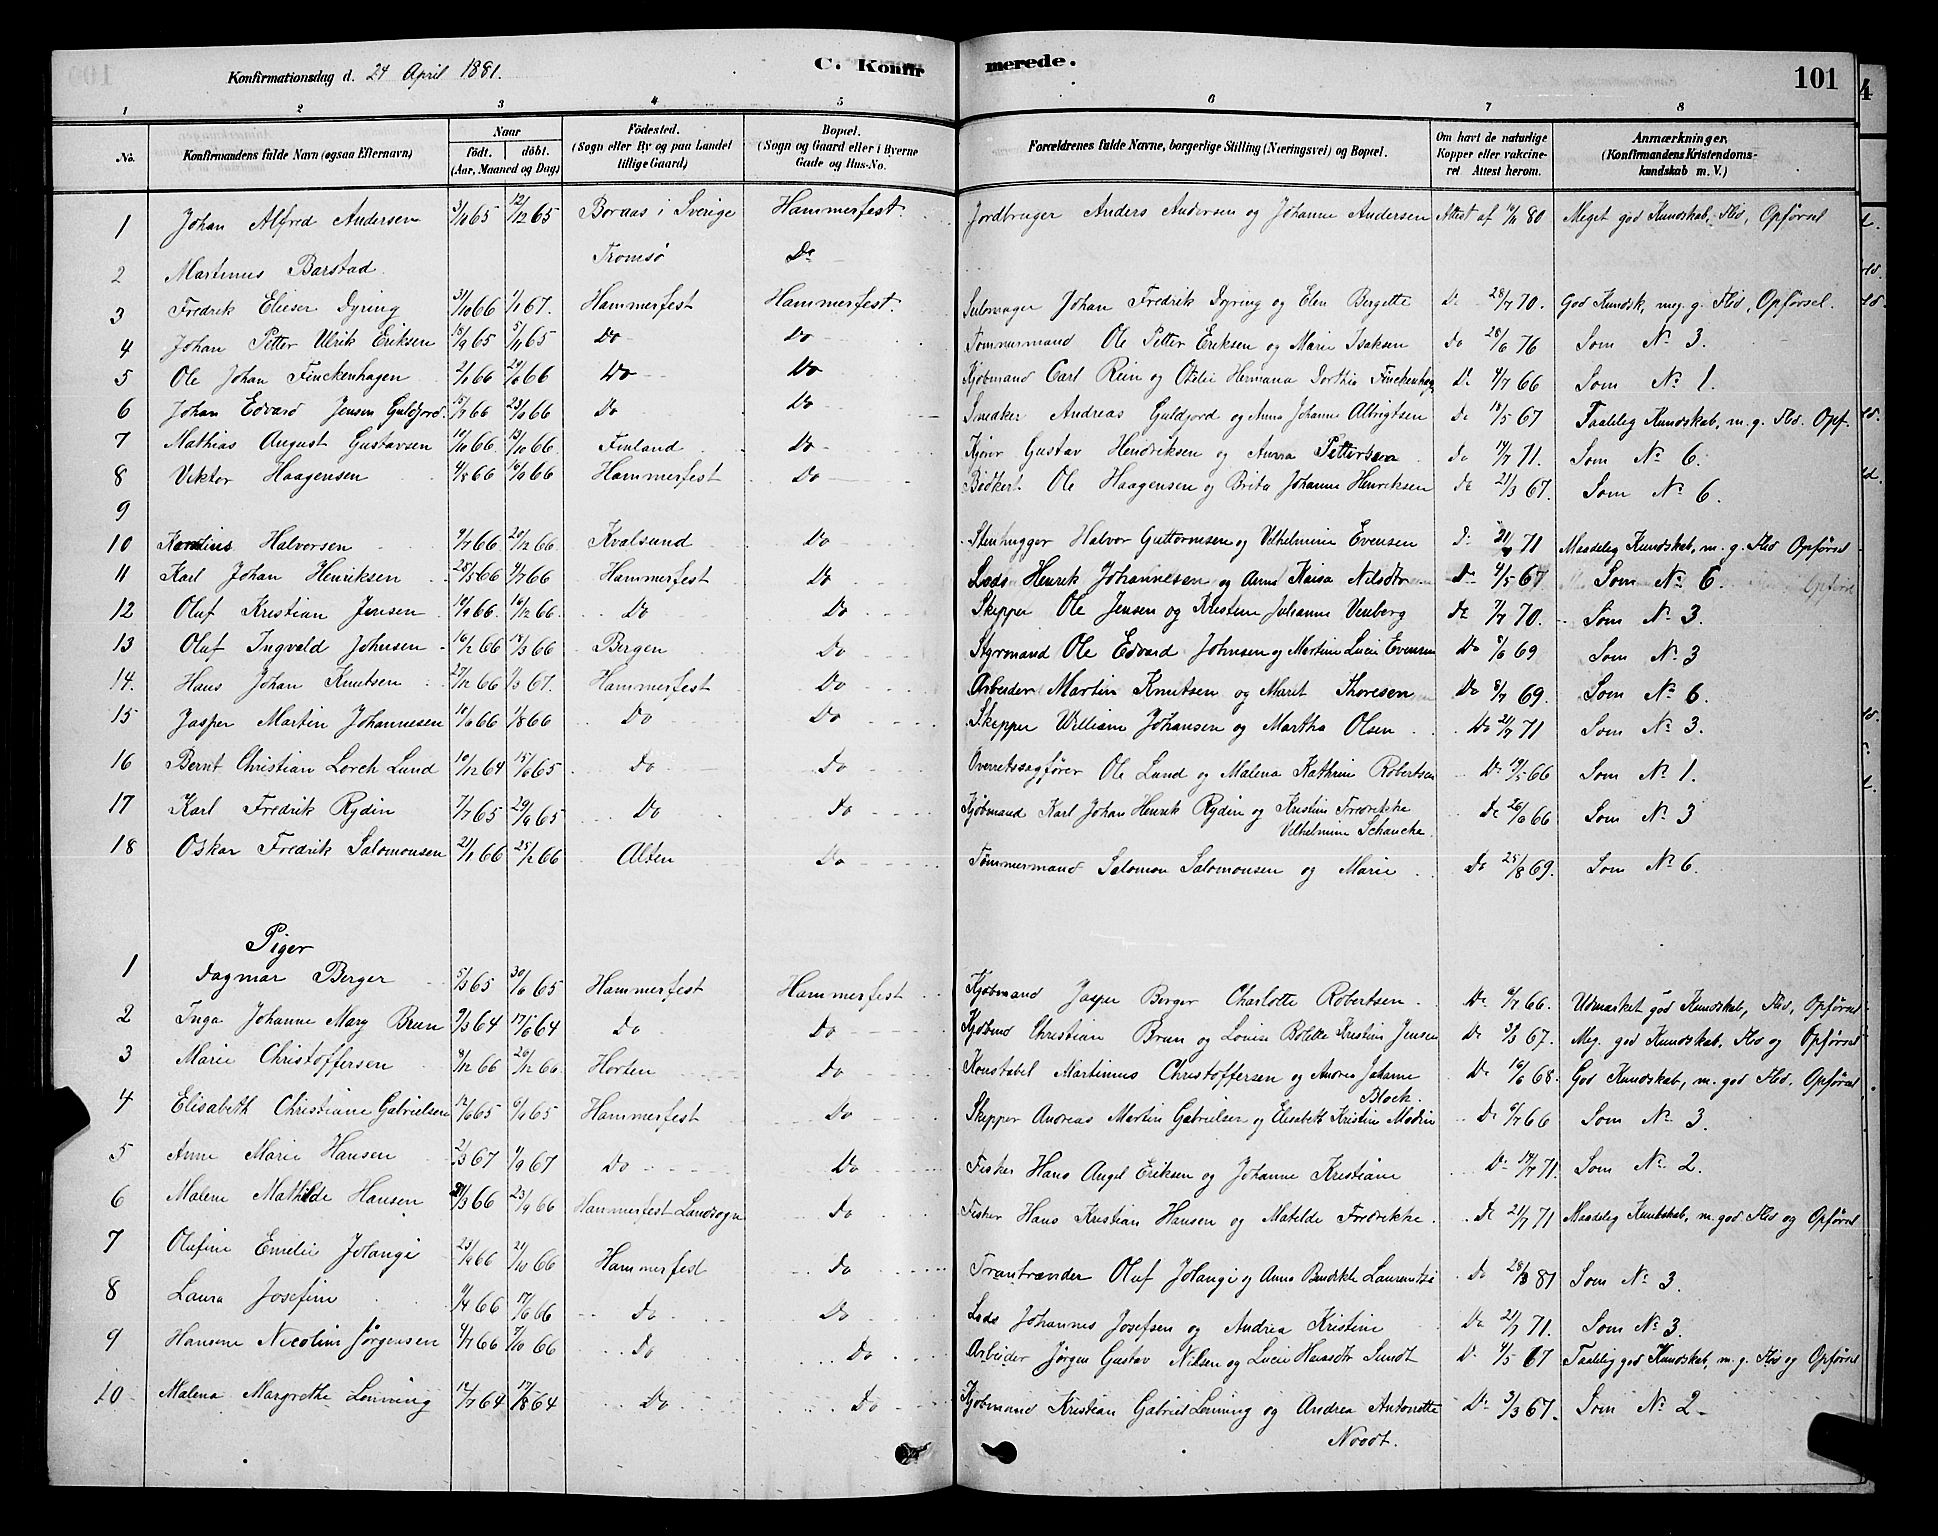 Konfirmationsdag d. 24 April 1881. C. Konfirmerede. 101
1 2 3 4 5 6 7 8
No. Konfirmandens fulde Navn (ogsaa Efternavn) Naar födt. döbt. (Aar, Maaned og Dag) Födested. (Sogn eller By og paa Landet tillige Gaard) Bopæl. (Sogn og Gaard eller i Byerne Gade og Hus-No. Forældrenes fulde Navne, borgerlige Stilling (Næringsvei) og Bopæl. Om havt de naturlige Kopper eller vakcineret Attest herom. Anmærkninger, (Konfirmandens Kristendomskundskab m. V.)
1 Johan Alfred Andersen 65 12/12 65 Boraas i Sverige Hammerfest. Jordbruger Anders Andersen og Johanne Andersen Attest af 80 Meget god Kundskab, Flid, Opförsel
2 Martinus Barstad Tromsø Do
3 Fredrik Elieser Dyring 31/10 66 1/1 67. Hammerfest Hammerfest. Johan Fredrik Dyring og Elen Bergette Do 28/7 70. God Kundsk, meg. g. Flid, Opförsel.
4 Johan Petter Ulrik Eriksen 15/9 65 5/11 65 Do Do Tömmermand Ole Petter Eriksen og Marie Isaksen Do 28/6 76 Som No 3.
5 Ole Johan Finckenhagen 2/1 66 29/6 66 Do Do Kjöbmand Carl Rein og Otelie Hermana Dorthia Finckenhag Do 4/7 66 Som No 1.
6 Johan Edvard Jensen Guldjord 66 66 Do Do Snedker Andreas Guldjord og Anne Johanne Albrigtsen Do 18/5 67 Taalelig Kundskab, m. g. Flid. Opf.
7 Mathias August Gustavsen 66. 66. Finland Do Gustav Hendriksen og Anna Pettersen Do 14/7 71. Som No 6.
8 Viktor Haagensen 4/8 66 16/9 66 Hammerfest Do Bödker Ole Haagensen og Brita Johanne Henriksen Do 21/3 67. Som No 6.
9
10 Halvorsen 9/7 66 20/12 66 Kvalsund Do Stenhugger Halvor Guttormsen og Vilhelmine Evensen Do 71 Maadelig Kundskab, m. g. Flid Opförsel
11 Karl Johan Henriksen 25/5 66 7/7 66 Hammerfest Do Lods Henrik Johannesen og Anna Kaisa Nilsdtr Do 4/5 67. Som No 6.
12 Oluf Kristian Jensen 66. 16/12 66. Do Do Skipper Ole Jensen og Kristine Julianne Venberg Do 7/7 70. Som No 3.
13 Oluf Ingvald Johnsen 16/2 66 18/3 66 Bergen Do Styrmand Ole Edvard Johnsen og Martine Lucie Evensen Do 8/6 69 Som No 3
14. Hans Johan Knutsen 27/12 66 1/3 67. Hammerfest Do Arbeider Martin Knutsen og Maret Thoresen Do 8/7 69. Som No 6.
15 Jasper Martin Johannesen 66 1/8 66 Do Do Skipper William Johansen og Martha Olsen Do 21/7 71 Som No 3.
16 Bernt Christian Lorch Lund 10/12 64 15/6 65 Do Do Overretssagförer Ole Lund og Malena Kathrine Robertsen Do 19/5 66 Som No 1.
17 Karl Fredrik Rydin 7/7 65 29/9 65 Do Do Kjöbmand Karl Johan Henrik Rydin og Kristine Fredrikke
Vilhelmine Schancke. Do 26/6 66 Som No 3
18 Oskar Fredrik Salomonsen 21/1 66 25/2 66 Alten Do Tömmermand Salomon Salomonsen og Marie Do 25/8 69. Som No 6.
Piger
1 Dagmar Berger 5/3 65 30/6 65 Hammerfest Hammerfest Kjöbmand Jasper Berger Charlotte Robertsen Do 6/7 66. Udmærket god Kundskab, Flid, Opförsel
2 Inga Johanne Mary Brun 9/3 64 17/6 64 Do Do Kjöbmd Christian Brun og Louise Bolette Kristine Jensen Do 3/3 67. Meg. god Kundskab, Flid og Opförsel
3 Marie Christoffersen 8/12 66 26/12 66 Horten Do Konstabel Martinius Christoffersen og Andrea Johanne
Block. Do 16/6 68. God Kundskab, m. god Flid, Opförsel
4 Elisabeth Christiane Gabrielsen 17/6 65 65 Hammerfest Do Skipper Andreas Martin Gabrielsen og Elisabeth Kristine Do 6/7 66 Som No 3.
5 Anne Marie Hansen 2/3 67 1/9 67 Do Do Fisker Hans Angel Eriksen og Johanne Kristiane Do 14/7 71. Som No 2.
6 Malene Mathilde Hansen 66 23/9 66 Hammerfest Landsogn Do Fisker Hans Kristian Hansen og Matilde Fredrikke Do 21/7 71 Maadelig Kundskab, m. god Flid og Opförsel
7 Olafine Emelie Jolangi 23/9 66 21/10 66 Hammerfest Do Trandrænder Oluf Jolangi og Anne Bendikte Do 28/3 81 Som No 3.
8 Laura Josefine 1/4 66 17/6 66 Do Do Lods Johannes Josefsen og Andrea Kristine Do 21/7 71. Som No 3.
9 Hansine Nicoline Jörgensen 4/7 66 7/10 66 Do Do Arbeider Jörgen Gustav Nilsen og Lucie Hansdtr Sundt Do 4/5 67 Taalelig god Kundskab, m. g. Flid og Opförsel
10 Malena Margrethe Lenning 17/7 64 17/8 64 Do Do Kjöbmand Kristian Gabriel Lenning og Andrea Antonette
Noodt. Do 3/3 67. Som No 2